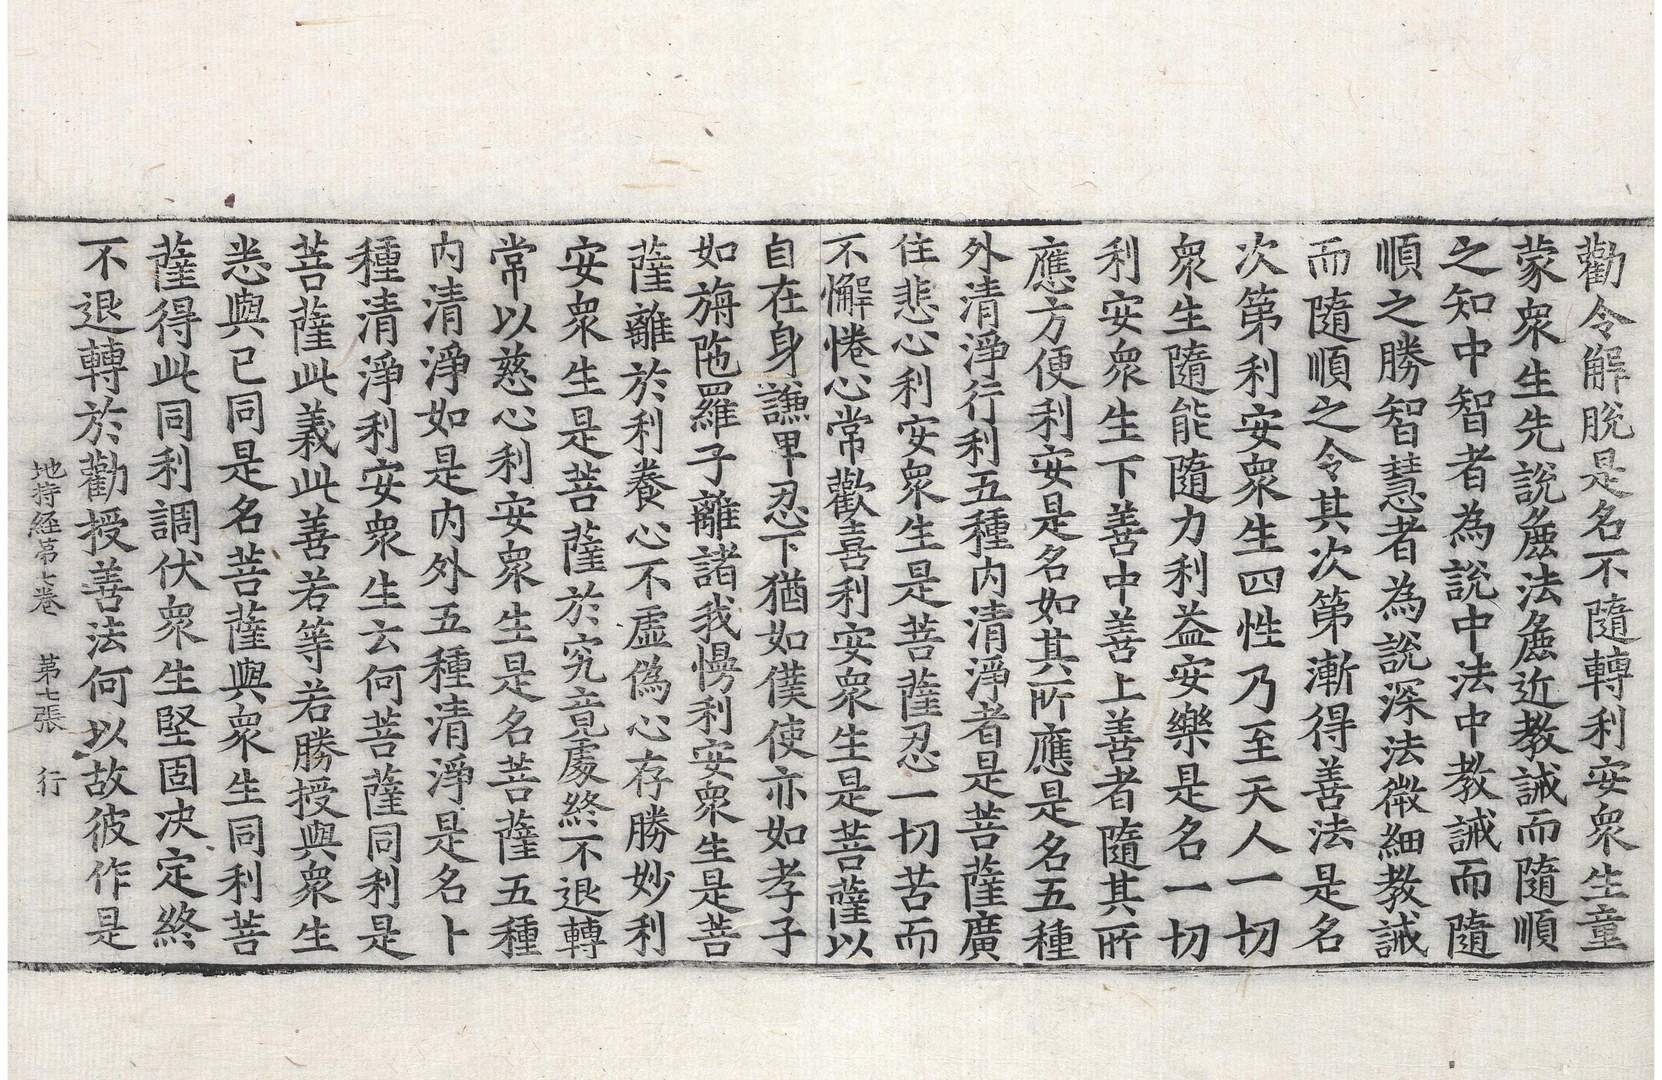 勸令解脫是名不隨轉利安衆生童
蒙衆生先說麁法麁近教誡而隨順
之知中智者為說中法中教誡而隨
順之勝智慧者為說深法微細教誡
而隨順之令其次第漸得善法是名
次第利安衆生四性乃至天人一切
衆生隨能隨力利益安樂是名一切
利安衆生下善中善上善者隨其所
應方便利安是名如其所應是名五種
外清淨行利五種內清淨者是菩薩廣
住悲心利安衆生是菩薩忍一切苦而
不懈惓心常歡喜利安衆生是菩薩以
自在身謙卑忍下猶如僕使亦如孝子
如旃陁羅子離諸我慢利安衆生是菩
薩離於利養心不虛偽心存勝妙利
安衆生是菩薩於究竟處終不退轉
常以慈心利安衆生是名菩薩五種
內清淨如是內外五種清淨是名十
種清淨利安衆生云何菩薩同利是
菩薩此義此善若等若勝授與衆生
悉與已同是名菩薩與衆生同利菩
薩得此同利調伏衆生堅固决定終
不退轉於勸授善法何以故彼作是
地持經第七卷　第七張　行